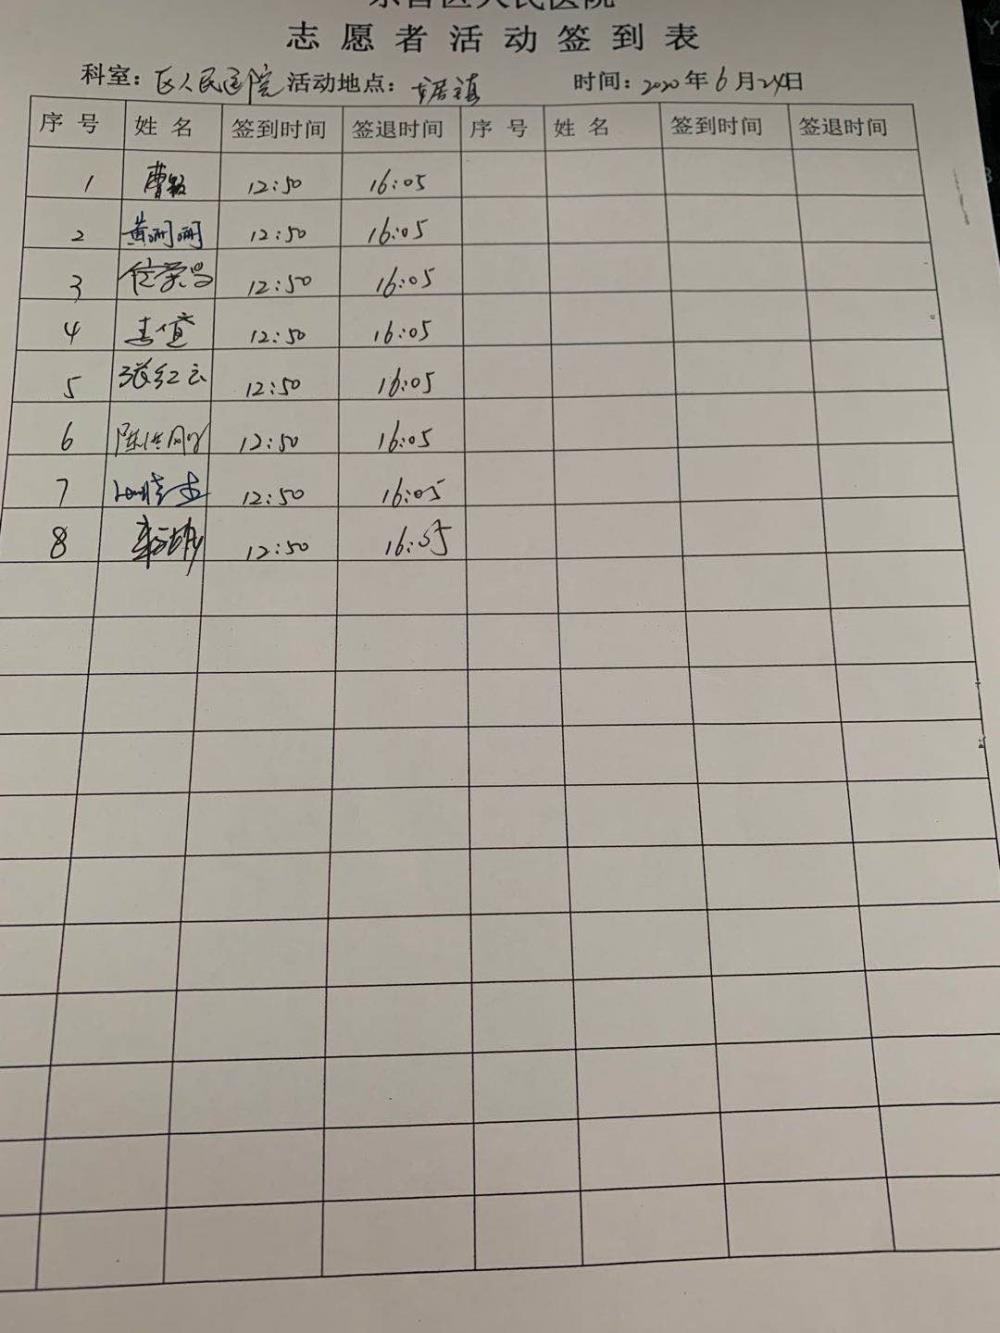 人民医院
志愿者活动签到表
科室：区人民医院 活动地点： 时间：2020年6月24日
序号 姓名 签到时间 签退时间 序号 姓名 签到时间 签退时间
1 曹敏 12:50 16:05
2 黄丽丽 12:50 16:05
3 12:50 16:05
4 12:50 16:05
5 张红云 12:50 16:05
6 12:50 16:05
7 12:50 16:05
8 12:50 16:05